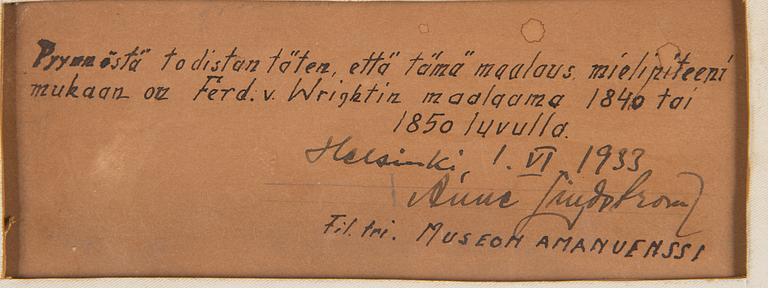 Pyynnöstä todistan täten, että tämä maalaus, mielipiteeni
mukaan on Ferd. v. Wrightin maalaama 1840 tai
1850 luvulla.
Helsinki 1. VI 1933
Aune Lindström
Fil. tri. MUSEON AMANUENSSI